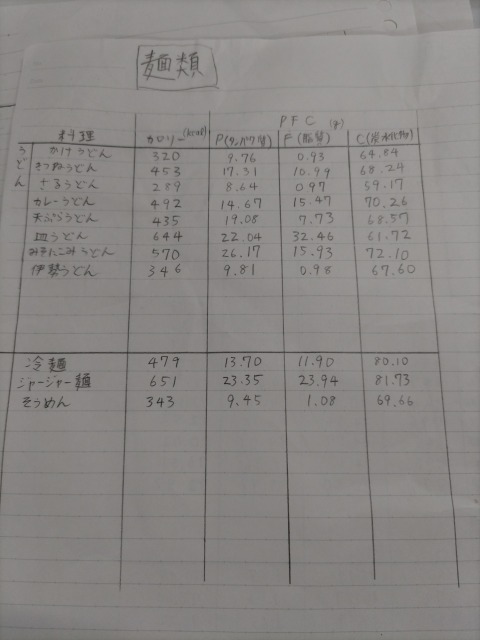 麺類
PFC (g)
料理 カロリー(kcal) P(タンパク質) F(脂質) C(炭水化物)
うどん
かけうどん 320 9.76 0.93 64.84
きつねうどん 453 17.31 10.99 68.24
ざるうどん 289 8.64 0.97 59.17
カレーうどん 492 14.67 15.47 70.26
天ぷらうどん 435 19.08 7.73 68.57
皿うどん 644 22.04 32.46 61.72
みそにこみうどん 570 26.17 15.93 72.10
伊勢うどん 346 9.81 0.98 67.60
冷麺 479 13.70 11.90 80.10
ジャージャー麺 651 23.35 23.94 81.73
そうめん 343 9.45 1.08 69.66